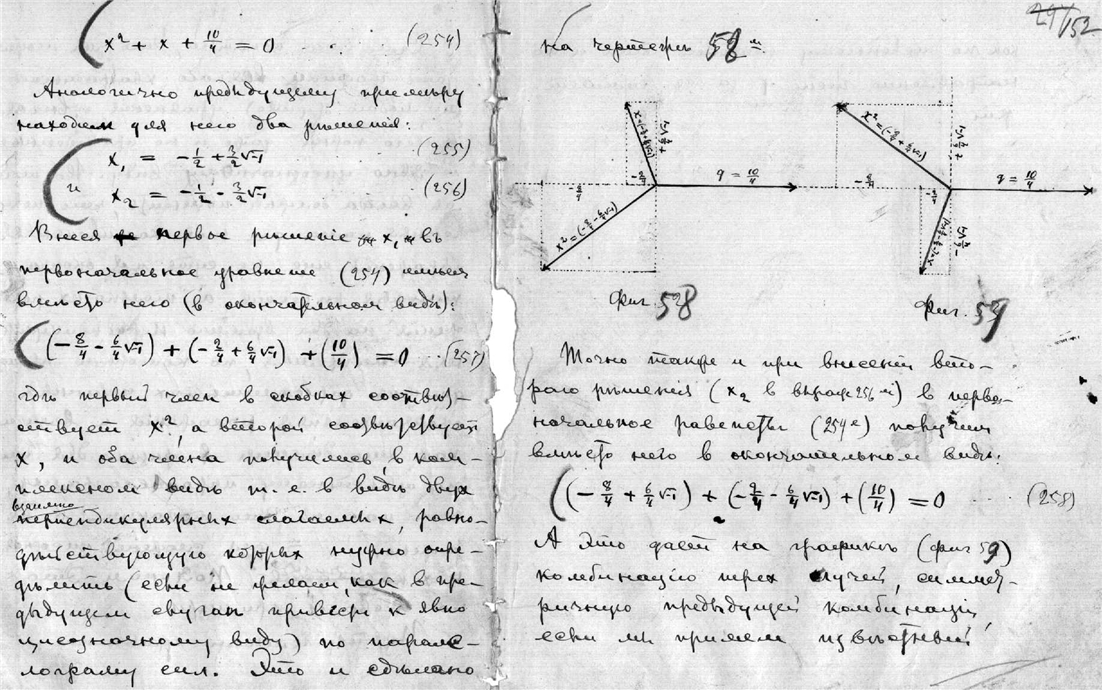 x² + x + 10/4 = 0 . . . (254)
Аналогично предъидущему примѣру
находим для него два рѣшенія:
x₁ = -1/2 + 3/2 √-1 (255)
и x₂ = -1/2 - 3/2 √-1 (256)
Внеся первое рѣшеніе x₁ въ
первоначальное уравнение (254) имѣем
вмѣсто него (в окончательном видѣ):
(-8/4 - 6/4 √-1) + (-2/4 + 6/4 √-1) + (10/4) = 0 . . (257)
гдѣ первый член в скобках соотвѣт-
ствует x², а второй соотвѣтствует
x, и оба члена получились в ком-
плексном видѣ т. е. в видѣ двух
взаимно
перпендикулярных слагаемых, равно-
дѣйствующую которых нужно опре-
дѣлить (если не желаем, как в пре-
дыдущем случаѣ привести к явно
циссоночному виду) по парале-
лограму сил. Это и сдѣлано
29/152
на чертежѣ 58-м.
x=(-2/4+6/4√-1)
+6/4√-1
-8/4
-2/4
q = 10/4
x²=(-8/4-6/4√-1)
фиг. 58
x²=(-8/4+6/4√-1)
+6/4√-1
-8/4
-2/4
q = 10/4
x=(-2/4-6/4√-1)
-6/4√-1
Фиг. 59
Точно также и при внесеніи вто-
раго рѣшенія (x₂ в выраж. 256-м) в перво-
начальное равенство (254е) получим
вмѣсто него в окончательном видѣ:
(-8/4 + 6/4 √-1) + (-2/4 - 6/4 √-1) + (10/4) = 0 . . . (258)
А это дает на графикѣ (фиг 59)
комбинацію трех лучей, симмет-
ричную предыдущей комбинаціи,
если мы примем извѣстный